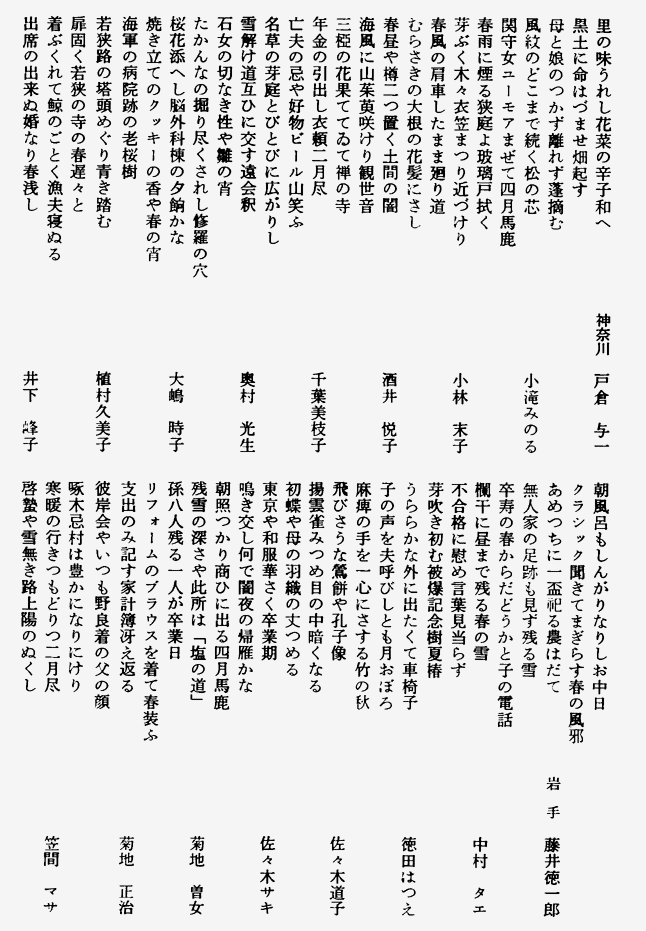 里の味うれし花菜の辛子和へ
黒土に命はづませ畑起す
神奈川 戸倉 与一
母と娘のつかず離れず蓬摘む
風紋のどこまで続く松の芯
関守女ユーモアまぜて四月馬鹿
小滝みのる
春雨に煙る狭庭よ玻璃戸拭く
芽ぶく木々衣笠まつり近づけり
小林 末子
春風の肩車したまま廻り道
むらさきの大根の花髪にさし
春昼や樽二つ置く土間の闇
酒井 悦子
海風に山茱萸咲けり観世音
三椏の花果ててゐて禅の寺
年金の引出し衣頼二月尽
千葉美枝子
亡夫の忌や好物ビール山笑ふ
名草の芽庭とびとびに広がりし
雪解け道互ひに交す遠会釈
奥村 光生
石女の切なき性や雛の宵
たかんなの掘り尽くされし修羅の穴
桜花添へし脳外科棟の夕餉かな
大嶋 時子
焼き立てのクッキーの香や春の宵
海軍の病院跡の老桜樹
若狭路の塔頭めぐり青き踏む
植村久美子
扉固く若狭の寺の春遅々と
着ぶくれて鯨のごとく漁夫寝ぬる
出席の出来ぬ婚なり春浅し
井下 峰子
朝風呂もしんがりなりしお中日
クラシック聞きてまぎらす春の風邪
あめつちに一盃祀る農はだて
岩手 藤井徳一郎
無人家の足跡も見ず残る雪
卒寿の春からだどうかと子の電話
欄干に昼まで残る春の雪
中村 タエ
不合格に慰め言葉見当らず
芽吹き初む被爆記念樹夏椿
うららかな外に出たくて車椅子
徳田はつえ
子の声を夫呼びしとも月おぼろ
麻痺の手を一心にさする竹の秋
飛びさうな鶯餅や孔子像
佐々木道子
揚雲雀みつめ目の中暗くなる
初蝶や母の羽織の丈つめる
東京や和服華さく卒業期
佐々木サキ
鳴き交し何で闇夜の帰雁かな
朝照つかり商ひに出る四月馬鹿
残雪の深さや此所は「塩の道」
菊地 曽女
孫八人残る一人が卒業日
リフォームのブラウスを着て春装ふ
支出のみ記す家計簿冴え返る
菊地 正治
彼岸会やいつも野良着の父の顔
啄木忌村は豊かになりにけり
寒暖の行きつもどりつ二月尽
笠間 マサ
啓蟄や雪無き路上陽のぬくし